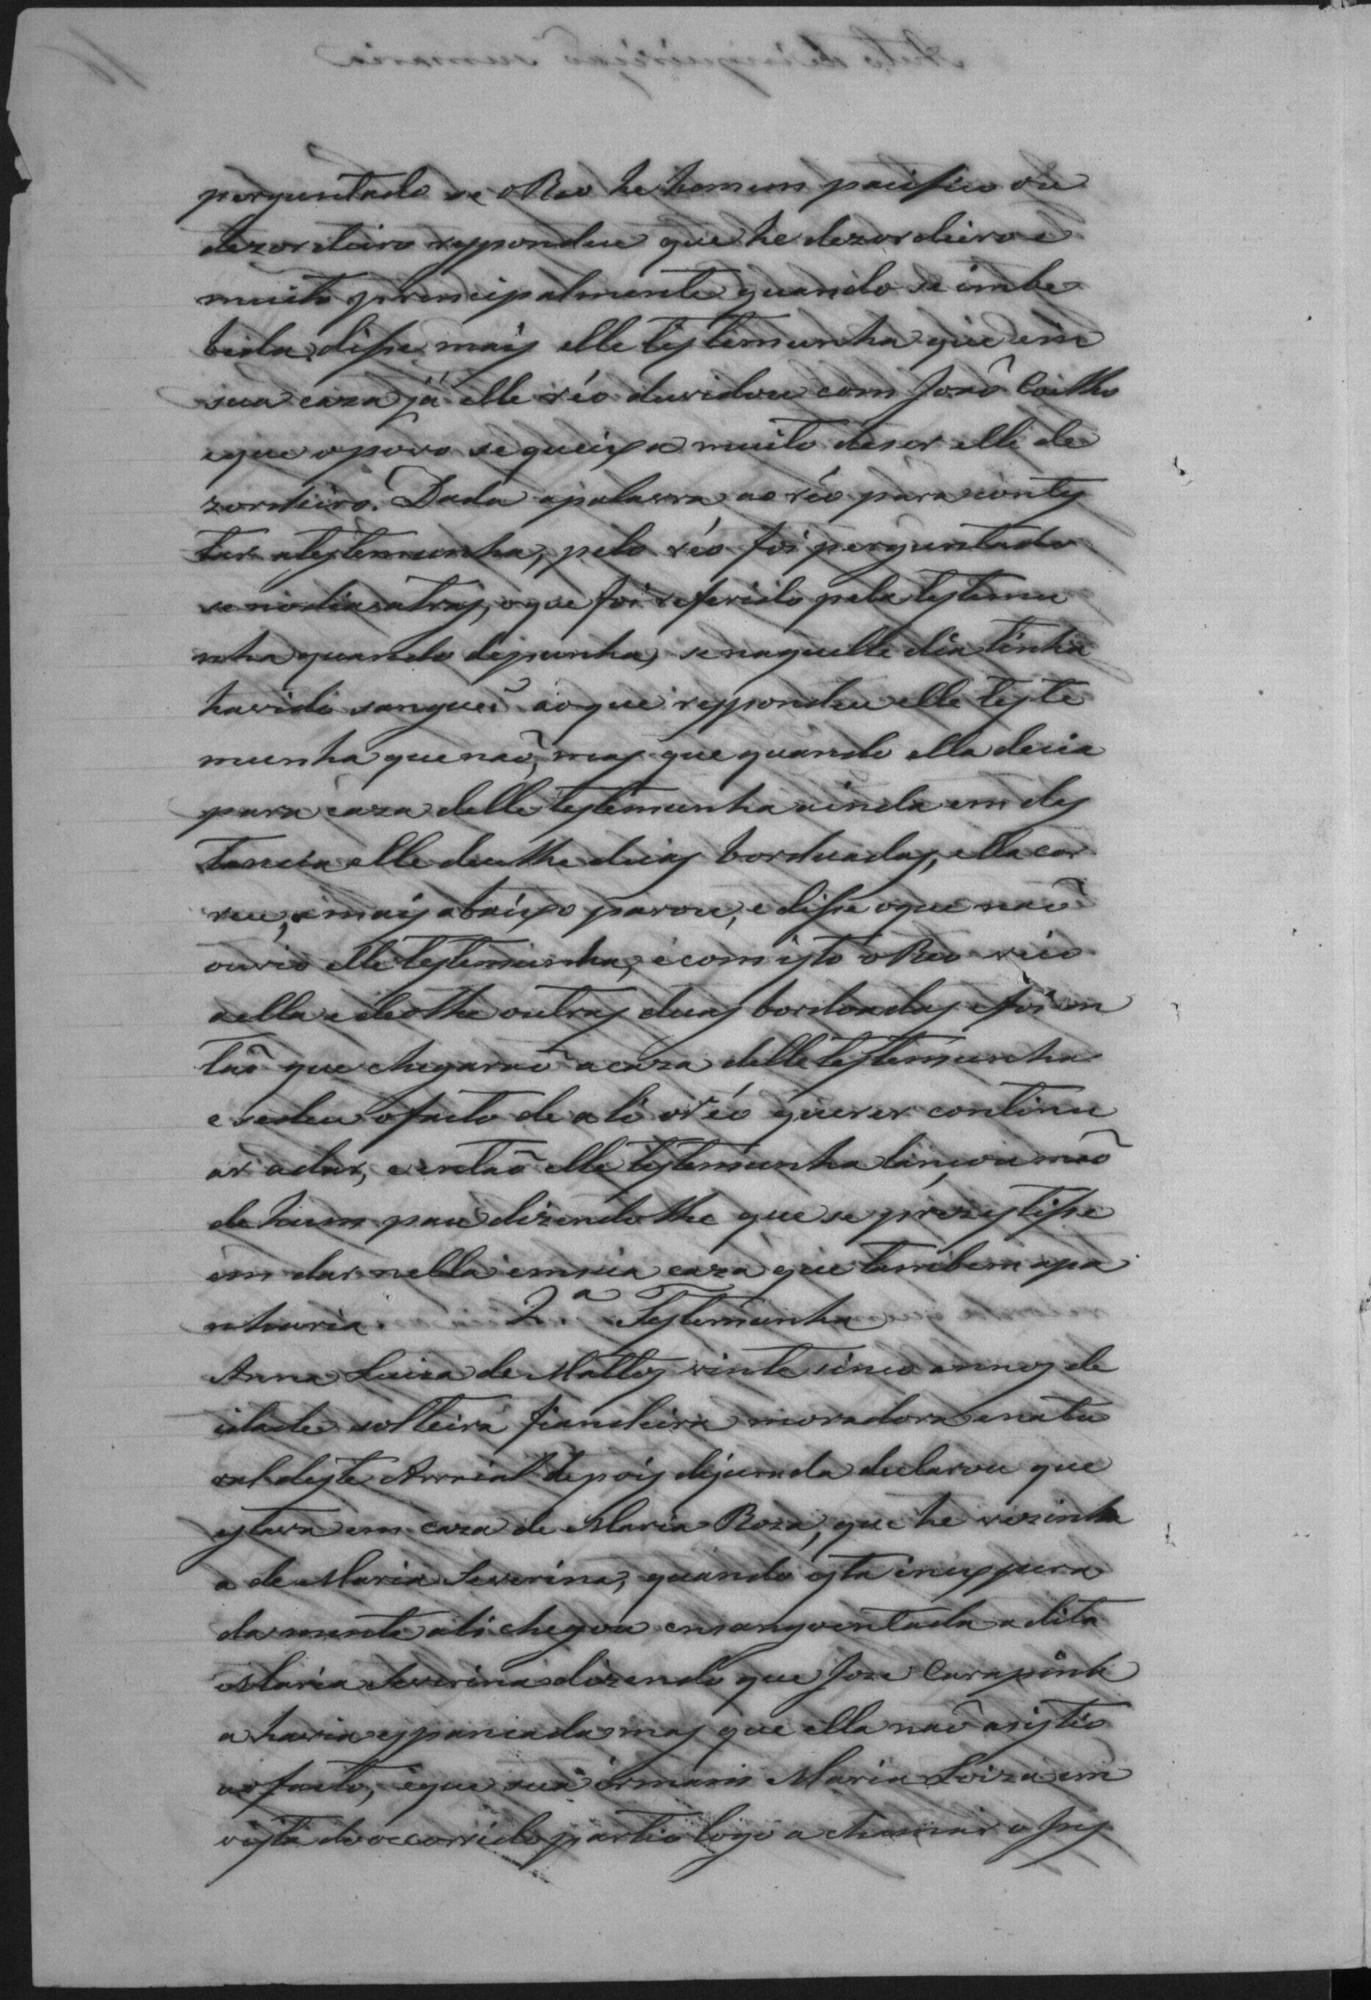 perguntado se o Reo he homem pacifico ou
dezordeiro respondeu que he dezordeiro e
muito principalmente quando se imbe
beda, disse mais elle testemunha que em
sua caza já elle réo duvidou com João Coelho
e que o povo se queixa muito deser elle de
zordeiro. Dada apalavra ao réo para contes
tar atestemunha, pelo réo foi perguntado
se nodia atras, oque foi referido pela testemu
nha quando depunha, se naquelle dia tinha
havido sangue: ao que respondeu elle teste
munha que naõ, mas que quando ella decia
para caza delle testemunha ainda em dis
tancia elle deulhe duas borduadas, ella cor
reu, e mais abaixo parou, e disse oque naõ
ouvio elle testemunha, e com isto o Reo veio
a ella e deolhe outras duas bordoadas e foi en
tão que chegaraõ a caza delle testemunha
e sedeu o facto de ali o réo querer continu
ar adar, e entaõ elle testemunha lançou maõ
de hum pau dizendolhe que se prezistisse
em dar nella em sua caza que tambem apa
nharia. 2ª Testemunha
Anna Luiza de Mattos vinte sinco annos de
idade solteira fiandeira moradora e natu
ral deste Arraial depois dejurada declarou que
estava em caza de Maria Roza, que he vezinha
a de Maria Severina, quando esta inespera
damente ali chegou ensangoentada a dita
Maria Severina dizendo que Joze Carapina
a havia espancado mas que ella naõ asistio
ao facto, e que sua irmam Maria Loiza em
vista do occorrido partio logo a chamar o Ins